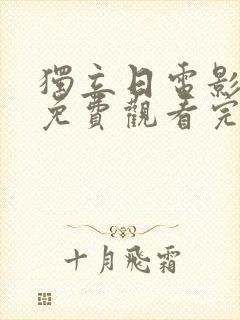 獨立日電影
免費觀看完
十月飛霜